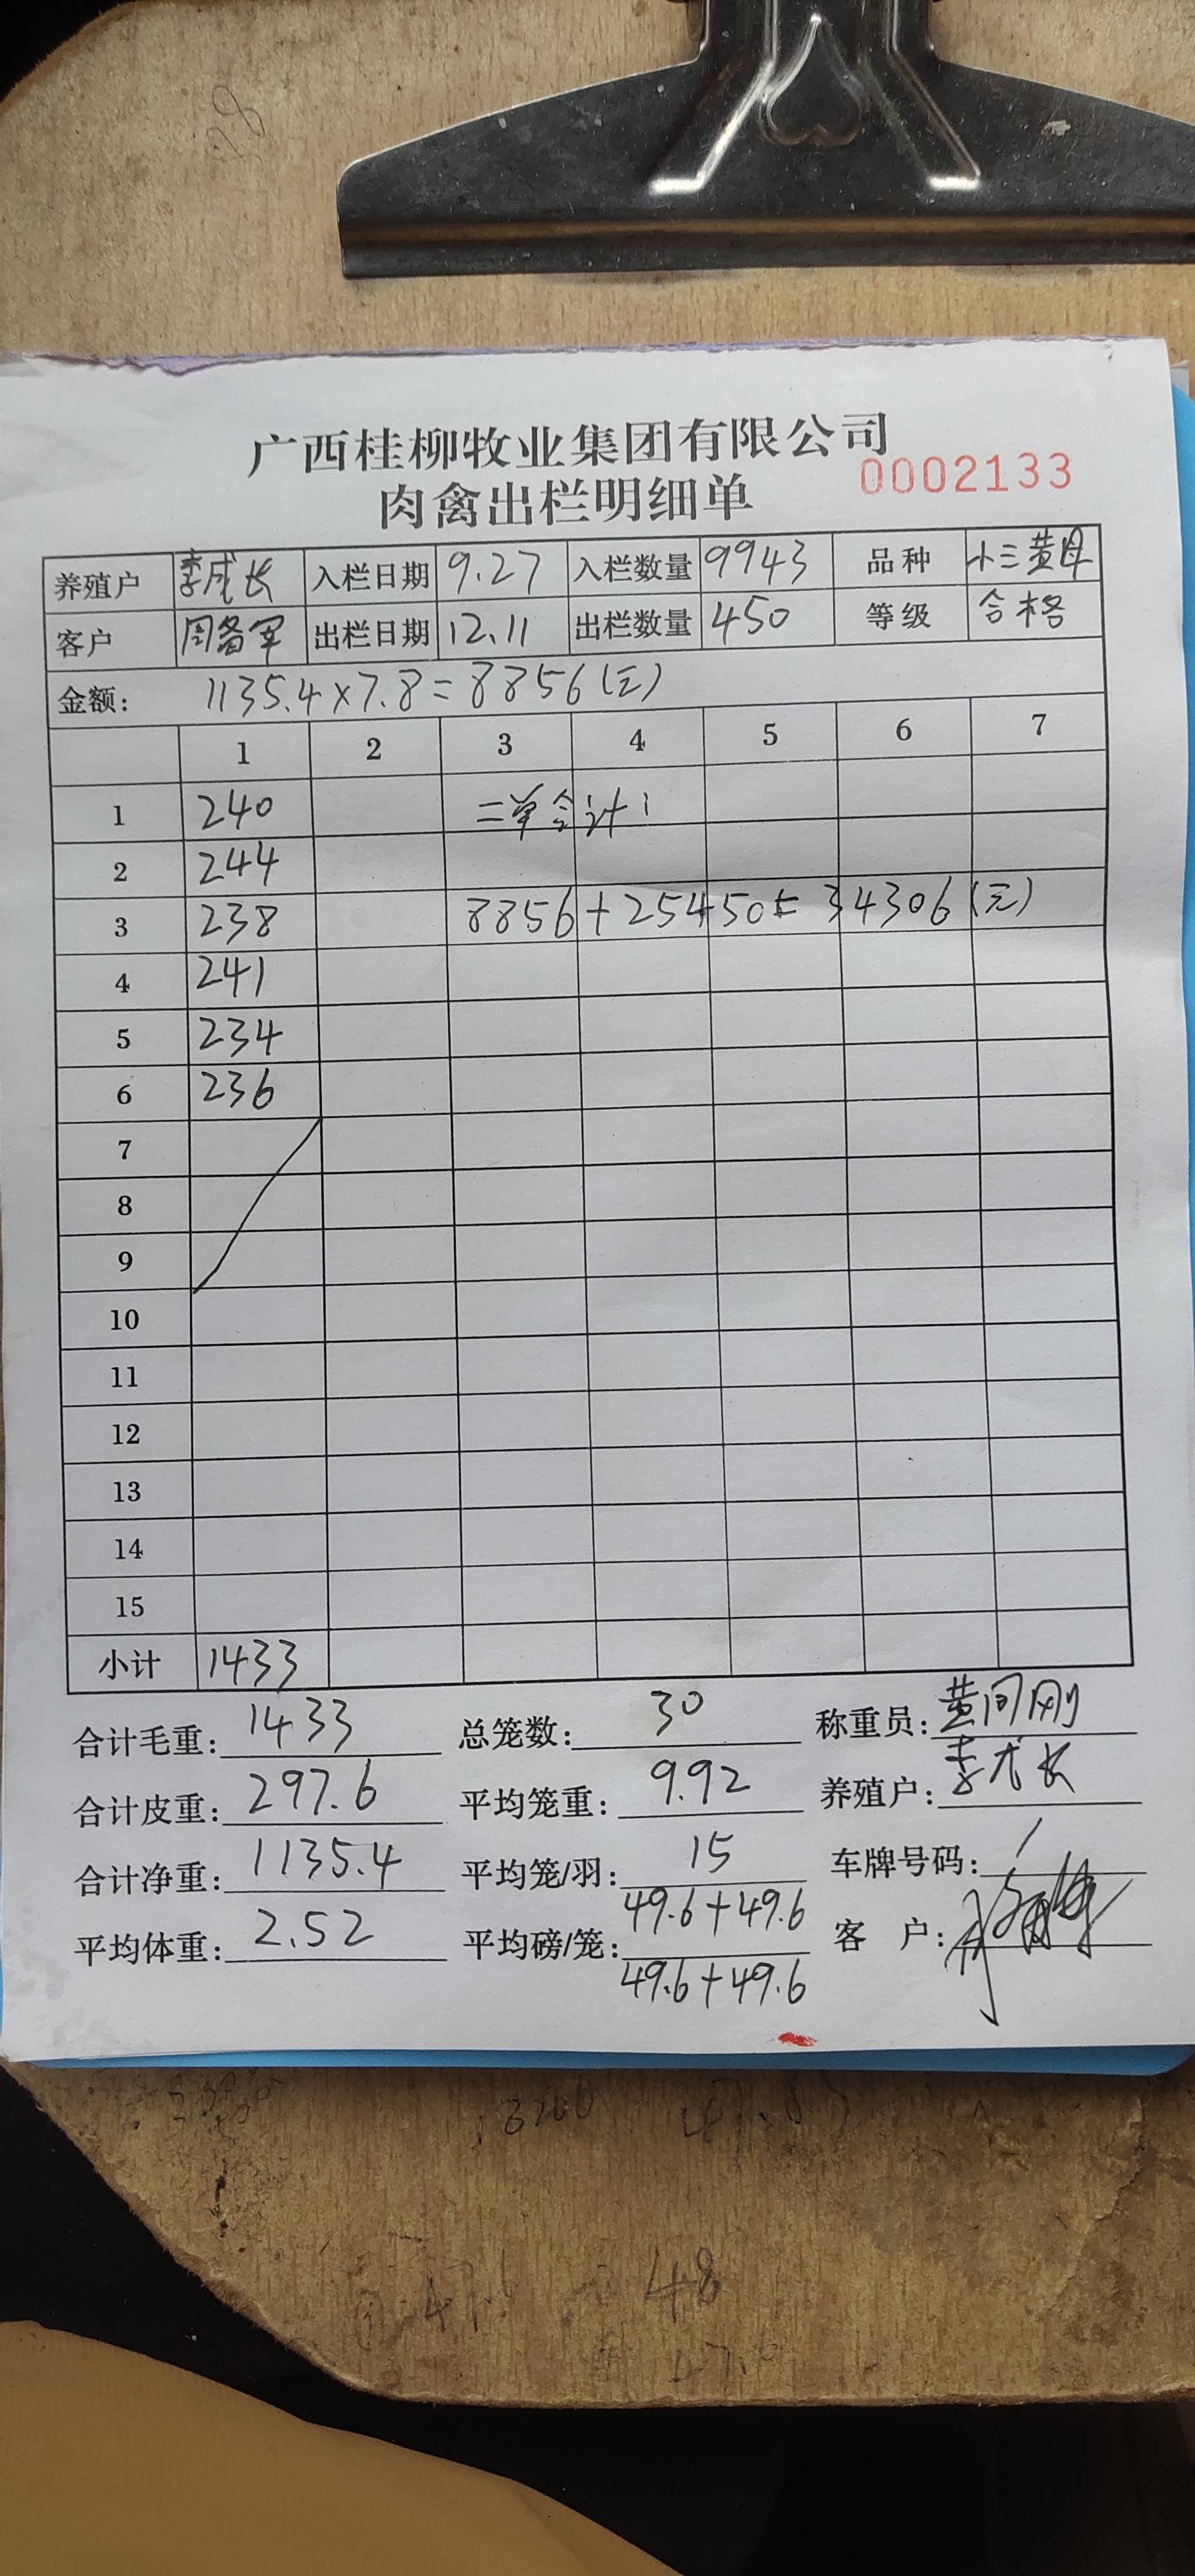 广西桂柳牧业集团有限公司
肉禽出栏明细单 0002133
养殖户 李成长 入栏日期 9.27 入栏数量 9943 品种 小三黄母
客户 周备军 出栏日期 12.11 出栏数量 450 等级 合格
金额: 1135.4×7.8=8856(元)
1 2 3 4 5 6 7
1 240 二单合计:
2 244
3 238 8856+25450=34306(元)
4 241
5 234
6 236
7
8
9
10
11
12
13
14
15
小计 1433
合计毛重: 1433 总笼数: 30 称重员: 黄同刚
合计皮重: 297.6 平均笼重: 9.92 养殖户: 李成长
合计净重: 1135.4 平均笼/羽: 15 车牌号码: /
平均体重: 2.52 平均磅/笼: 49.6+49.6 客 户:
49.6+49.6
48